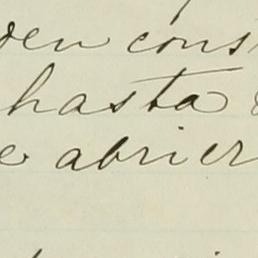 den cons
hasta
e abrier